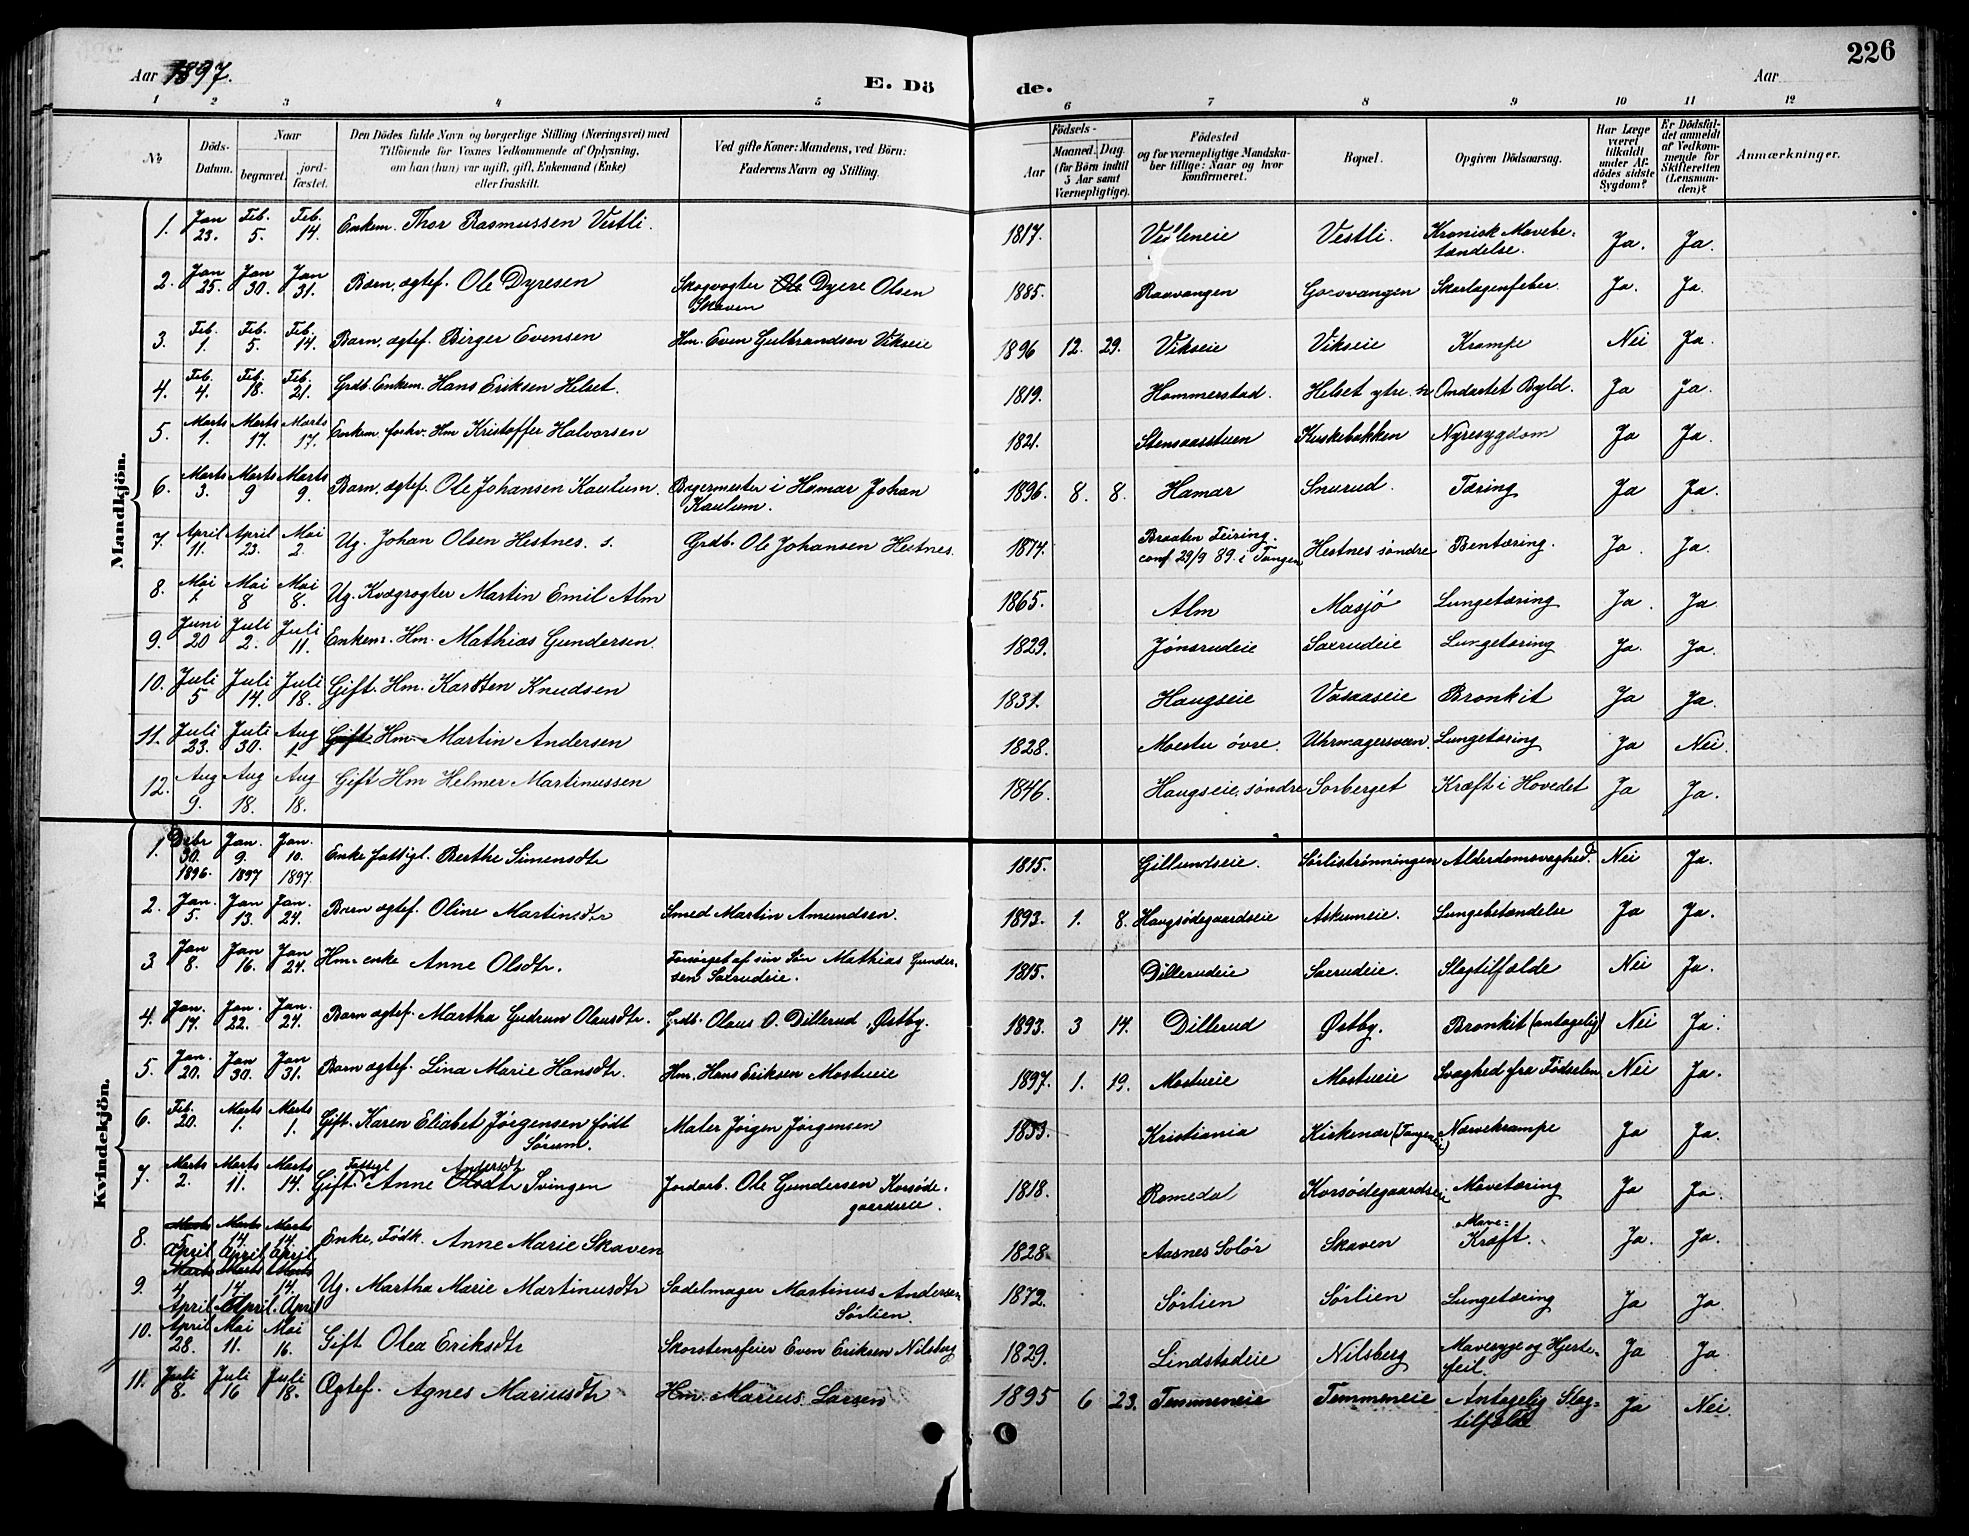 226
Aar 1897.
E. Dö
de.
Aar
1 2 3 4 5 6 7 8 9 10 11 12
No
Döds-Datum.
Naar
begravet.
jord-fæstet.
Den Dödes fulde Navn og borgerlige Stilling (Næringsvei) med
Tilföiende for Voxnes Vedkommende af Oplysning,
om han (hun) var ugift, gift, Enkemand (Enke)
eller fraskilt.
Ved gifte Koner: Mandens, ved Börn:
Faderens Navn og Stilling.
Födsels-
Aar
Maaned. Dag.
(for Børn indtil
5 Aar samt
Værnepligtige).
Födested
og for værnepligtige Mandska-
ber tillige: Naar og hvor
konfirmeret.
Bopæl.
Opgiven Dödsaarsag.
Har Læge
været
tilkaldt
under Af-
dödes sidste
Sygdom?
Er Dödsfal-
det anmeldt
af Vedkom-
mende for
Skifteretten
(Lensman-
den)?
Anmærkninger.
Mandkjön.
1. Jan 23. Feb. 5. Feb. 14. Enkem. Thor Rasmussen Vestli. 1817. Vestli. Kronisk Mavebe-
tændelse. Ja. Ja.
2. Jan 25. Jan 30. Jan 31. Barn, ægtef. Ole Dyresen Skogvogter Ole Dyere Olsen
Skaven 1885. Skarlagenfeber. Ja. Ja.
3. Feb. 1. Feb. 5. Feb. 14. Barn, ægtef. Birger Evensen Hm. Even Gulbrandsen Vikseie 1896 12. 29. Vikseie Vikseie Krampe Nei Ja.
4. Feb. 4. Feb. 18. Feb. 21. Grdb. Enkem. Hans Eriksen Helset. 1819. Hommerstad. Helset ytre Ondartet Byld. Ja Ja.
5. Marts 1. Marts 17. Marts 17. Enkem. forhv. Hm Kristoffer Halvorsen 1821. Stensaasstuen Kuskebakken Nyresygdom Ja Ja.
6. Marts 3. Marts 9 Marts 9. Barn, ægtef. Ole Johansen Kaulum. Bagermester i Hamar Johan
Kaulum. 1896. 8. 8. Hamar Snurud. Tæring Ja Ja.
7. April 11. April 23. Mai 2. Ug. Johan Olsen Hestnes. s. Grdb. Ole Johansen Hestnes. 1874. Braaten Feiring.
conf 29/9 89. i Tangen Hestnes søndre Bentæring. Ja. Ja.
8. Mai 1. Mai 8 Mai 8. Ug. Kvægrøgter Martin Emil Alm 1865. Alm Masjø Lungetæring Ja. Ja.
9. Juni 20 Juli 2. Juli 11. Enkem. Hm. Mathias Gundersen. 1829. Jønsrudeie Saxrudeie Lungetæring Ja. Ja.
10. Juli 5 Juli 14. Juli 18. Gift. Hm. Karsten Knudsen 1831. Haugseie Vasaaseie Bronkit Ja Ja.
11. Juli 23. Juli 30. Aug 1. Gift Hm. Martin Andersen 1828. Moestu øvre. Uhrmagersvæn Lungetæring Ja Nei.
12. Aug 9. Aug 18. Aug 18. Gift Hm Helmer Martinussen 1846. Haugseie, søndre Sorberget Kræft i Hovedet Ja Ja.
Kvindekjön.
1. Debr 30. 1896. Jan. 9. 1897 Jan. 10. 1897. Enke Fattigl. Berthe Simensdtr 1815. Gillundseie. Sørlistrønningen Alderdomsvaghed. Nei Ja.
2. Jan. 5. Jan 13. Jan. 24. Barn ægtef. Oline Martinsdtr Smed Martin Amundsen. 1893. 1. 8. Haugsødegaardseie Askumeie. Lungebetændelse Ja Ja.
3 Jan 8. Jan 16. Jan 24. Hm. enke Anne Olsdtr. Forsørget af sin Søn Mathias Gunder-
sen Saxrudeie. 1815. Dillerudeie Saxrudeie. Slagtilfælde Nei Ja.
4. Jan. 17. Jan. 22. Jan. 24. Barn ægtef. Martha Gudrun Olausdtr. Grdb. Olaus O. Dillerud, Østby. 1893. 3 14. Dillerud Østby. Bronkit (antagelig) Nei Ja.
5. Jan. 20. Jan 30. Jan 31. Barn ægtef. Lina Marie Hansdtr. Hm. Hans Eriksen Mostueie 1897. 1. 19. Mostueie Mostueie Svaghed fra Fødselen Nei Ja.
6. Feb. 20. Marts 1. Marts 1. Gift. Karen Eliabet Jørgensen født
Sørum. Mater Jørgen Jørgensen 1833. Kristiania Kirkenær (Tangen) Nervekrampe Ja Ja.
7. Marts 2. Marts 11. Marts 14. Gift. Fattigl Anne Olsdtr Andersdtr Svingen Jordarb. Ole Gundersen Korsøde-
gaardseie. 1818. Romedal Korsødegaardseie Mavetæring Ja Ja.
8. Marts 5 April Marts 14. April Marts 14. April Enke, Födk. Anne Marie Skaven 1828. Aasnes Solør Skaven Mave-
Kræft. Ja. Ja.
9. Marts 4 April Marts 14. April. Marts 14. April Ug. Martha Marie Martinusdtr Sadelmager Martinus Andersen
Sørlien. 1872. Sørlien Sørlien Lungetæring Ja Ja.
10. April 28. Mai 11. Mai 16. Gift Olea Eriksdtr Skorstensfeier Even Eriksen Nilsberg 1829. Lindstadeie Nilsberg Mavesyge og Hjerte-
feil. Ja Ja.
11. Juli 8. Juli 16 Juli 18. Ægtef. Agnes Mariusdtr Hm. Marius Larsen 1895 6 23. Tommeneie Tommeneie Antagelig Slag-
tilfælde Ja Nei.